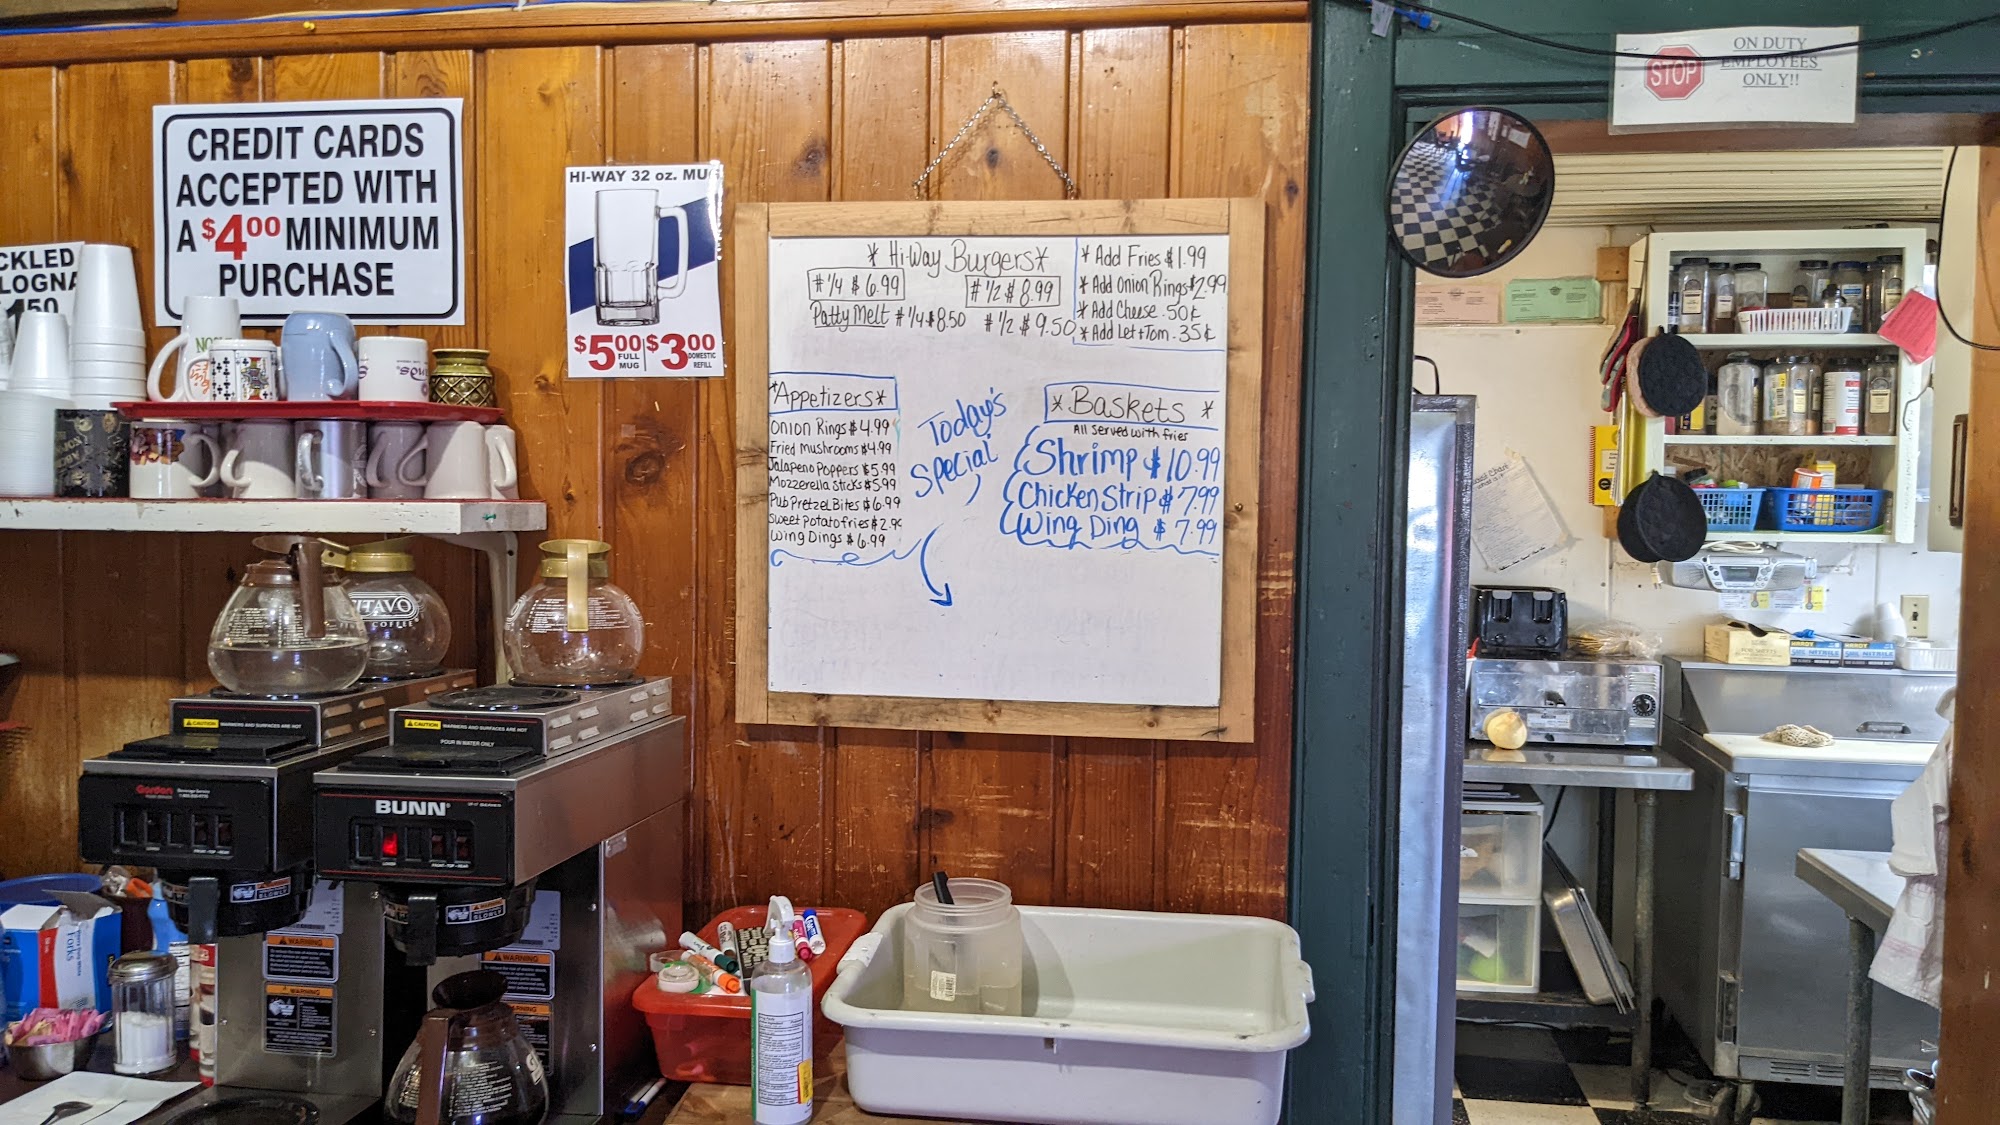 CREDIT CARDS
ACCEPTED WITH
A $4.00 MINIMUM
PURCHASE
CKLED
LOGNA
HI-WAY 32 oz. MUG
$5.00 FULL MUG
$3.00 DOMESTIC REFILL
* Hi-Way Burgers *
# 1/4 $ 6.99
# 1/2 $ 8.99
Patty Melt # 1/4 $ 8.50 # 1/2 $ 9.50
* Add Fries $1.99
* Add Onion Rings $2.99
* Add Cheese .50¢
* Add Let+Tom .35¢
*Appetizers*
Onion Rings $4.99
Fried Mushrooms $4.99
Jalapeno Poppers $5.99
Mozzerella Sticks $5.99
Pub Pretzel Bites $6.99
Sweet Potato fries $2.9
Wing Dings $6.99
Today's
Special
* Baskets *
All served with fries
Shrimp $10.99
Chicken Strip $7.99
Wing Ding $7.99
STOP
ON DUTY
EMPLOYEES
ONLY!!
CAUTION WARMERS AND SURFACES ARE HOT
CAUTION WARMERS AND SURFACES ARE HOT
POUR IN WATER ONLY
Gordon
BUNN
WARNING
WARNING
WARNING
WARNING
SLOWLY
SLOWLY
Forks